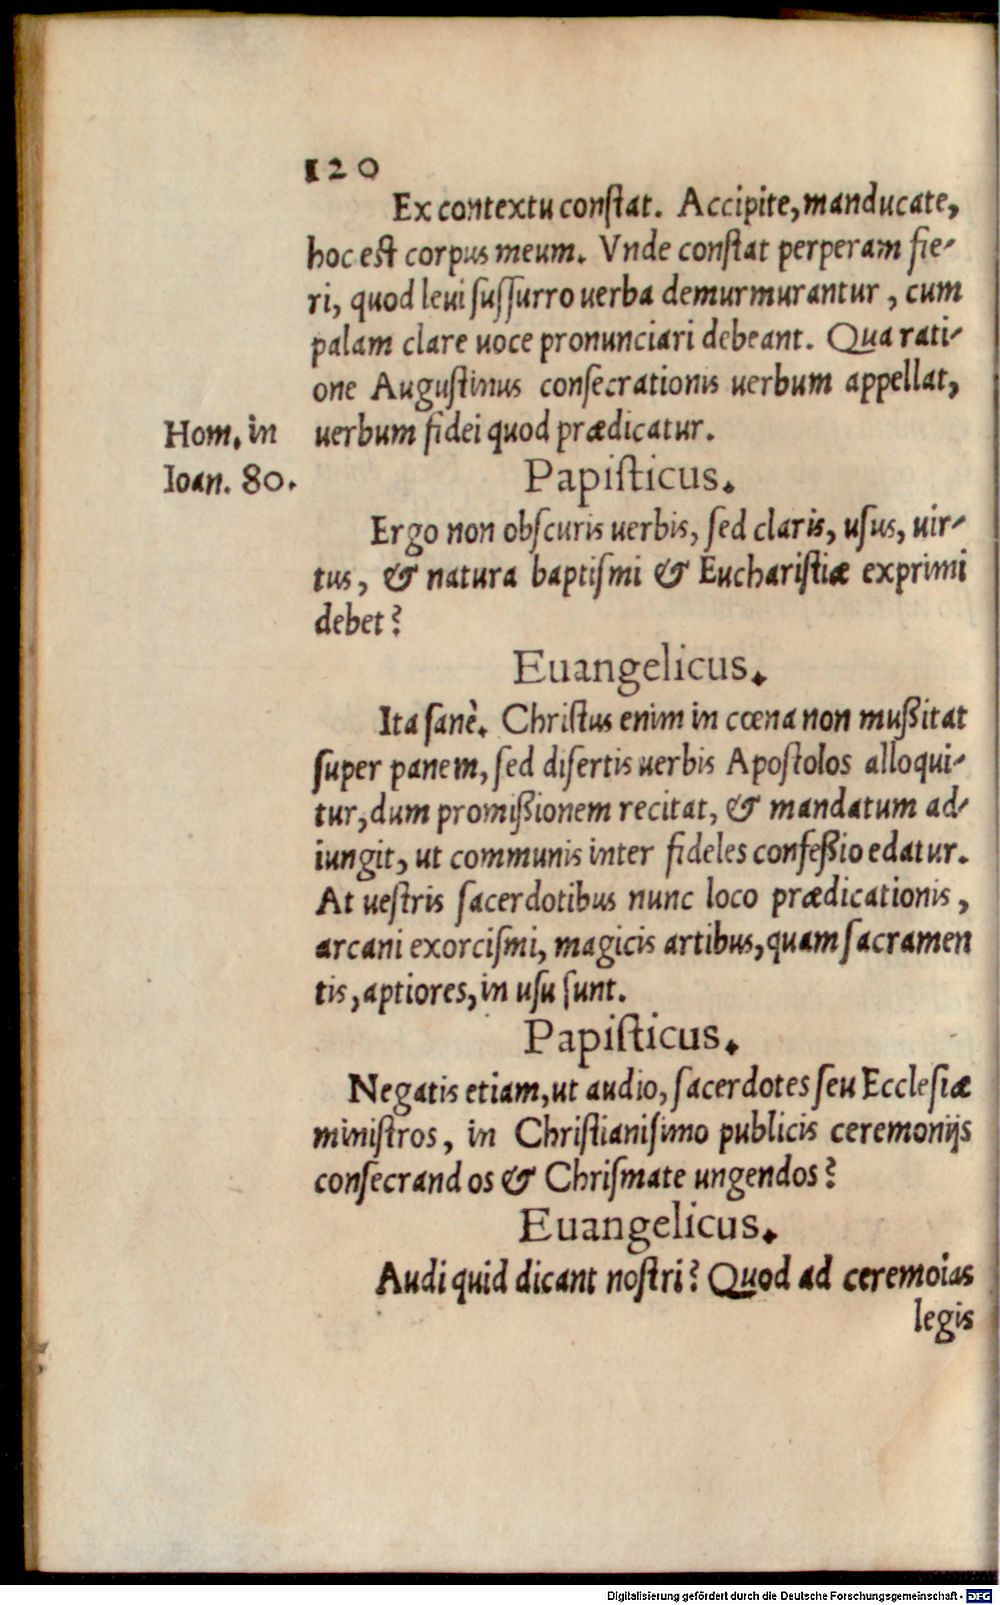 120
Ex contextu conſtat. Accipite, manducate,
hoc eſt corpus meum. Vnde conſtat perperam fie-
ri, quod leui ſuſſurro uerba demurmurantur, cum
palam clare uoce pronunciari debeant. Qua rati-
one Auguſtinus conſecrationis uerbum appellat,
Hom. in uerbum fidei quod prædicatur.
Ioan. 80.
Papiſticus.
Ergo non obſcuris uerbis, ſed claris, uſus, uir-
tus, & natura baptiſmi & Euchariſtiæ exprimi
debet?
Euangelicus.
Ita ſanè. Chriſtus enim in cœna non mußitat
ſuper panem, ſed diſertis uerbis Apoſtolos alloqui-
tur, dum promißionem recitat, & mandatum ad-
iungit, ut communis inter fideles confeßio edatur.
At ueſtris ſacerdotibus nunc loco prædicationis,
arcani exorciſmi, magicis artibus, quam ſacramen
tis, aptiores, in uſu ſunt.
Papiſticus.
Negatis etiam, ut audio, ſacerdotes ſeu Eccleſiæ
miniſtros, in Chriſtianiſimo publicis ceremonijs
conſecrandos & Chriſmate ungendos?
Euangelicus.
Audi quid dicant noſtri? Quod ad ceremoias
legis
Digitalisierung gefördert durch die Deutsche Forschungsgemeinschaft - DFG